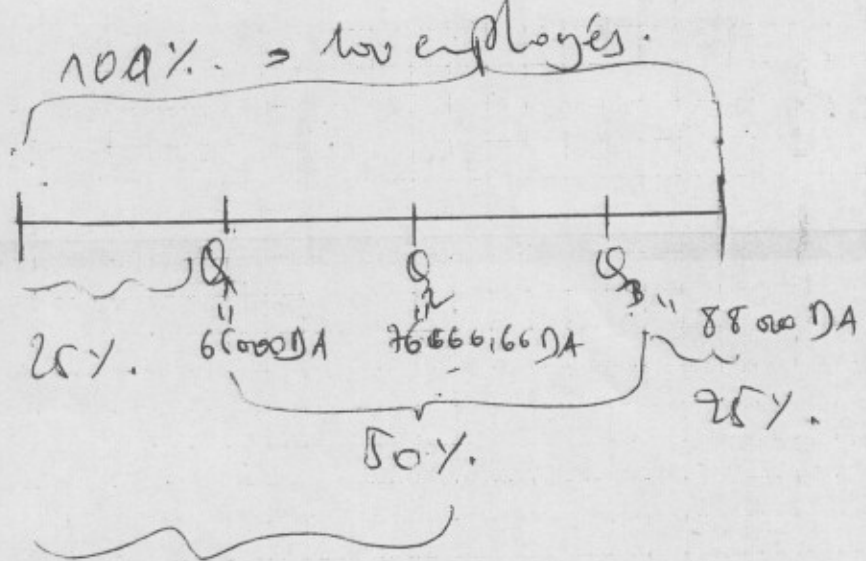 100%. = 100 employés.
Q1 Q2 Q3
25%. " 65000DA " 76666,66DA " 88000DA
50%. 25%.